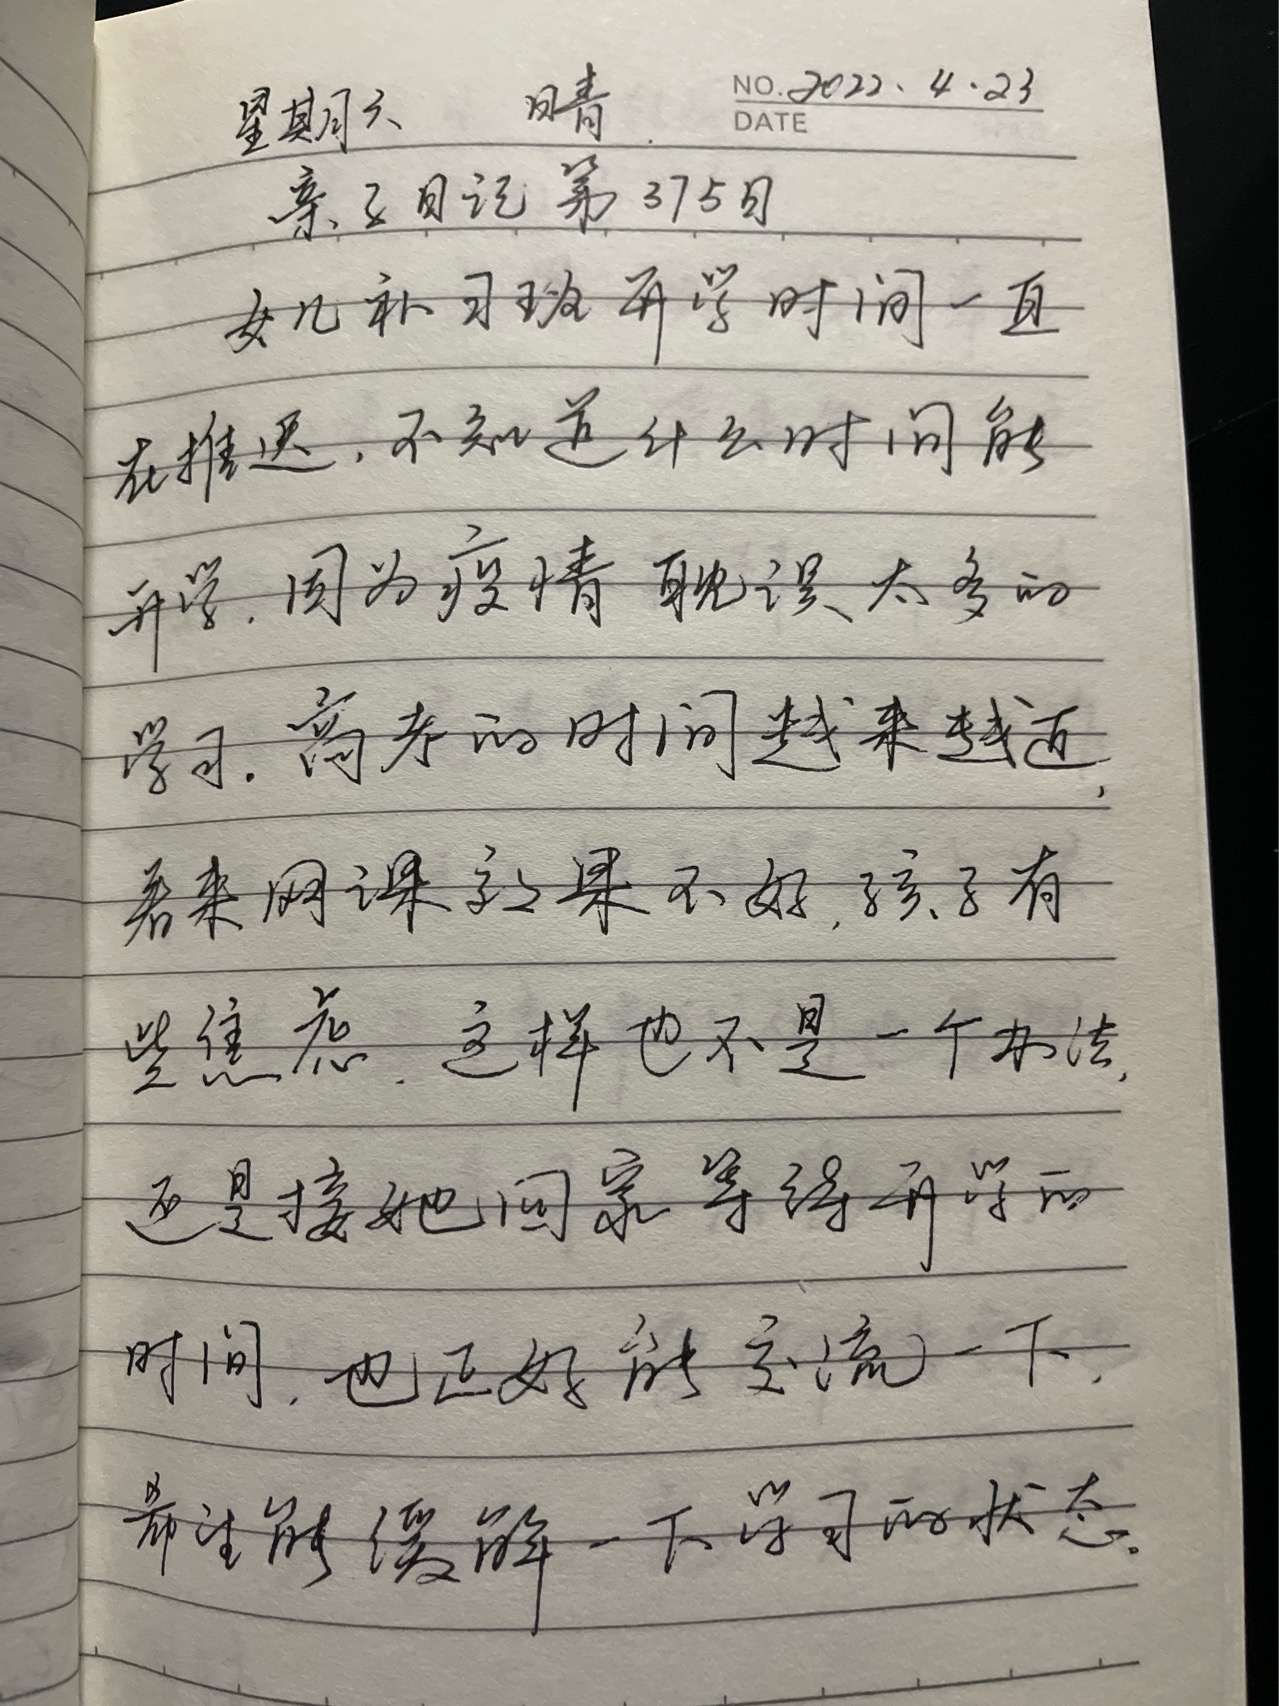 NO. 2022.4.23
DATE
星期六 晴
亲子日记第375日
女儿补习班开学时间一直
在推迟,不知道什么时间能
开学,因为疫情耽误太多的
学习.高考的时间越来越近,
看来网课效果不好,孩子有
些焦虑.这样也不是一个办法,
还是接她回家等待开学的
时间,也正好能交流一下,
希望能缓解一下学习的状态。